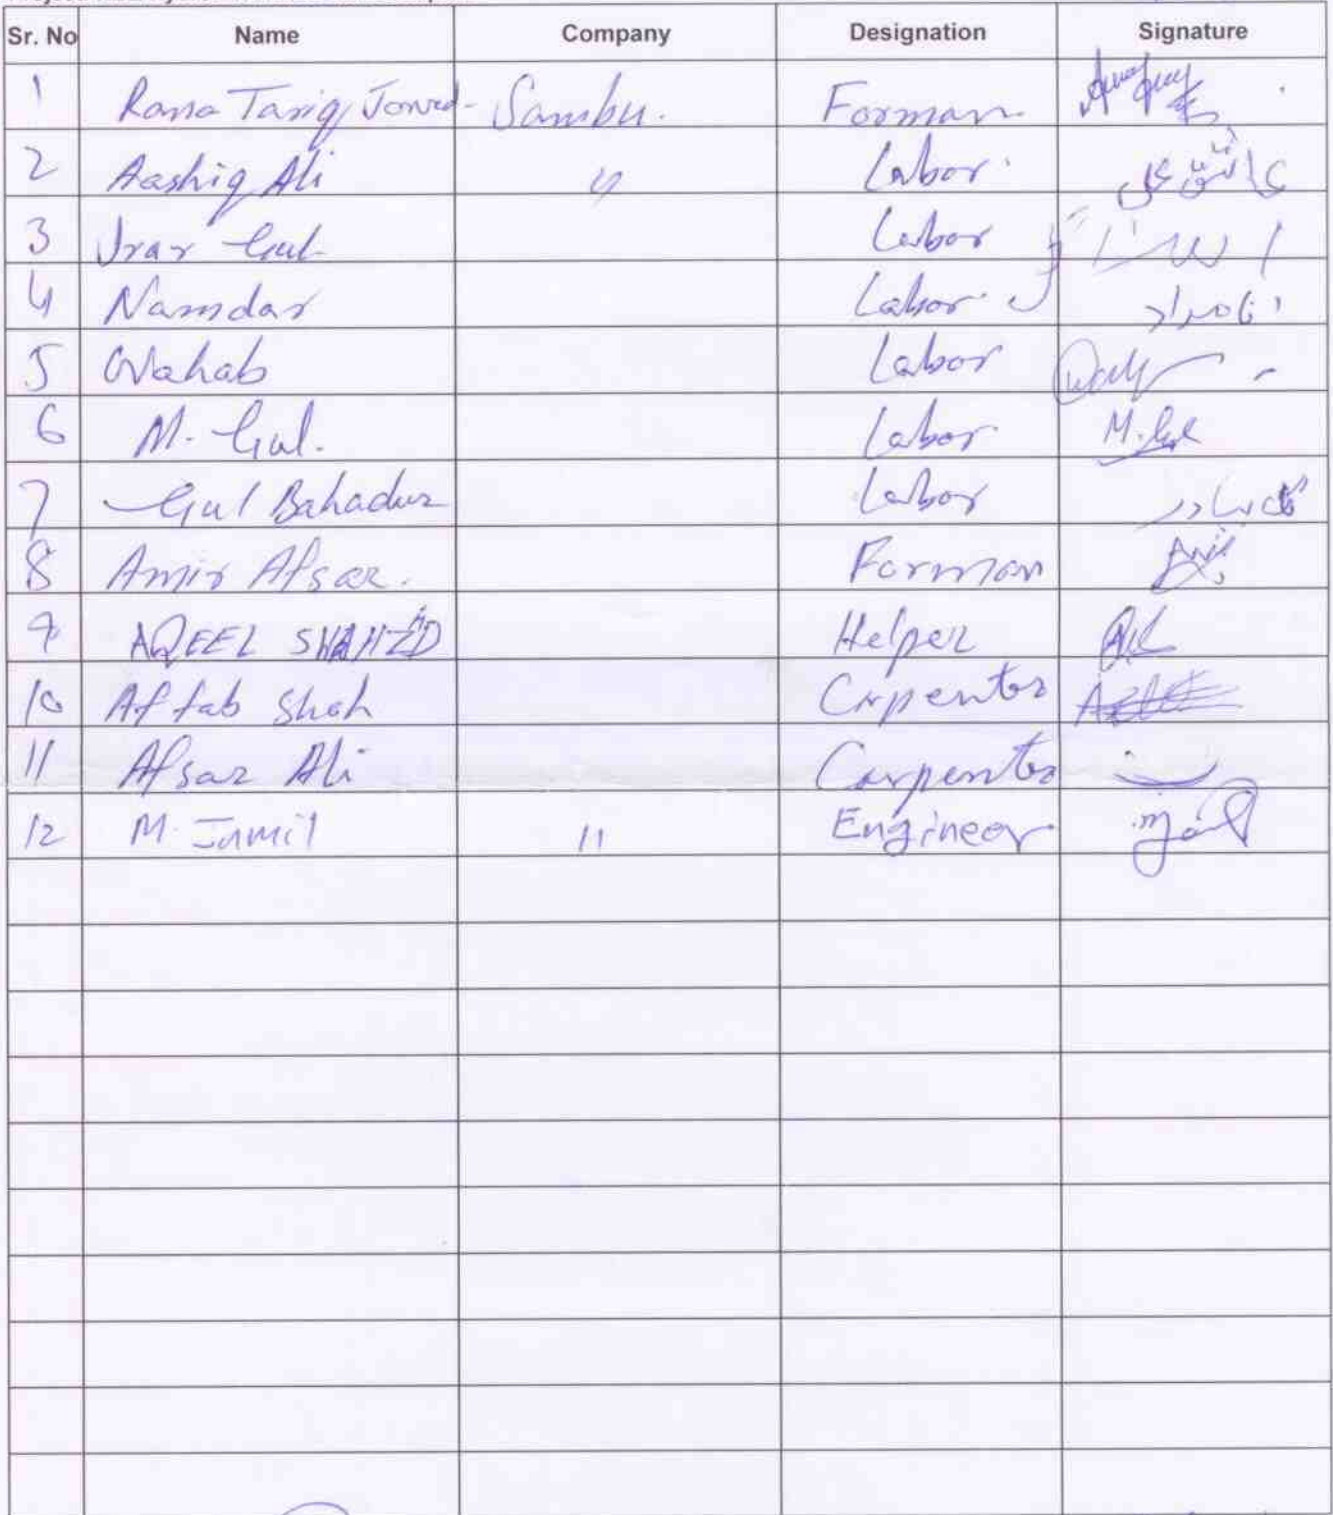 Sr. No Name Company Designation Signature
1 Rana Tariq Javed - Sambu. Forman
2 Aashiq Ali " Labor عاشق علی
3 Israr Gul Labor
4 Namdar Labor نامدار
5 Wahab Labor
6 M. Gul. Labor M. Gul
7 Gul Bahadur Labor گل بہادر
8 Amir Afsar. Forman
9 AQEEL SHAHZD Helper
10 Aftab Shah Crpenter
11 Afsar Ali Carpenter
12 M. Jamil " Engineer